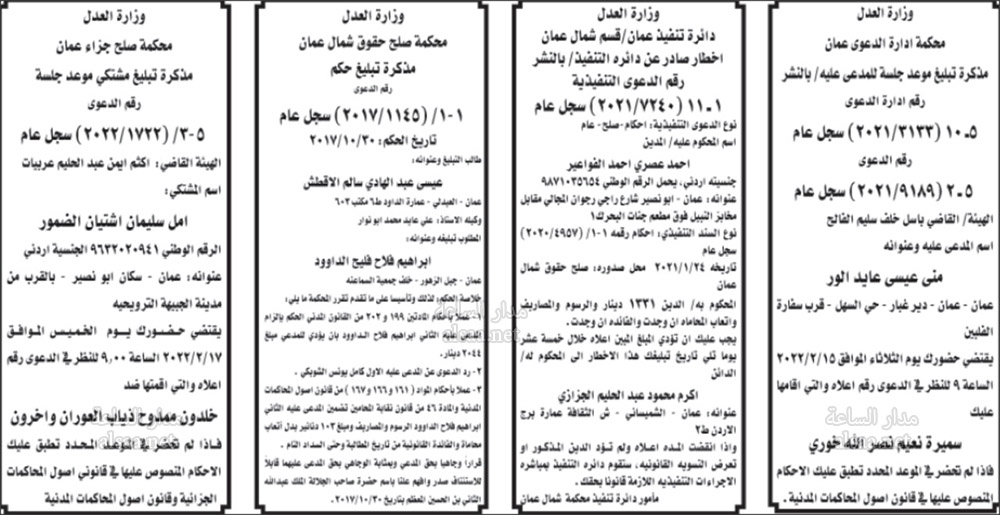 وزارة العدل
محكمة ادارة الدعوى عمان
مذكرة تبليغ موعد جلسة للمدعى عليه/ بالنشر
رقم ادارة الدعوى
٥ـ١٠ (٢٠٢١/٣١٣٣) سجل عام
رقم الدعوى
٥ـ٢ (٢٠٢١/٩١٨٩) سجل عام
الهيئة/ القاضي باسل خلف سليم الفالح
اسم المدعى عليه وعنوانه
منى عيسى عايد الور
عمان - عمان - دير غبار - حي السهل - قرب سفارة
الفلبين
يقتضي حضورك يوم الثلاثاء الموافق ٢٠٢٢/٢/١٥
الساعة ٩ للنظر في الدعوى رقم اعلاه والتي اقامها
عليك
سميرة نعيم نصر الله خوري
فاذا لم تحضر في الموعد المحدد تطبق عليك الاحكام
المنصوص عليها في قانون اصول المحاكمات المدنية .
وزارة العدل
دائرة تنفيذ عمان/قسم شمال عمان
اخطار صادر عن دائره التنفيذ/ بالنشر
رقم الدعوى التنفيذية
١ـ١١ (٢٠٢١/٧٢٤٠) سجل عام
نوع الدعوى التنفيذية: احكام-صلح- عام
اسم المحكوم عليه/ المدين
احمد عصري احمد الفواعير
جنسيته اردني، يحمل الرقم الوطني ٩٨٧١٠٣٥٦٥٤
عنوانه: عمان - ابو نصير شارع راجي رجوان المجالي مقابل
مخابز النبيل فوق مطعم جنات البحرك١
نوع السند التنفيذي: احكام رقمه ١-١/ (٢٠٢٠/٤٩٥٧)
سجل عام
تاريخه ٢٠٢١/١/٢٤ محل صدوره: صلح حقوق شمال
عمان
المحكوم به/ الدين ١٣٣١ دينار والرسوم والمصاريف
واتعاب المحاماه ان وجدت والفائده ان وجدت .
يجب عليك ان تؤدي المبلغ المبين اعلاه خلال خمسة عشر
يوما تلي تاريخ تبليغك هذا الاخطار الى المحكوم له/
الدائن
اكرم محمود عبد الحليم الجزازي
عنوانه: عمان - الشميساني - ش الثقافة عمارة برج
الاردن ط٢
واذا انقضت المده اعلاه ولم تؤد الدين المذكور او
تعرض التسويه القانونيه، ستقوم دائره التنفيذ بمباشره
الاجراءات التنفيذيه اللازمة قانونا بحقك .
مأمور دائرة تنفيذ محكمة شمال عمان
وزارة العدل
محكمة صلح حقوق شمال عمان
مذكرة تبليغ حكم
رقم الدعوى
١-١/ (٢٠١٧/١١٤٥) سجل عام
تاريخ الحكم: ٢٠١٧/١٠/٣٠
طالب التبليغ وعنوانه:
عيسى عبد الهادي سالم الاقطش
عمان - العبدلي - عمارة الداود ط٦ مكتب ٦٠٣
وكيله الاستاذ: علي عايد محمد ابو نوار
المطلوب تبليغه وعنوانه:
ابراهيم فلاح فليح الداوود
عمان - جبل الزهور - خلف جمعية السماعنه
خلاصة الحكم: لذلك وتأسيسا على ما تقدم تقرر المحكمة ما يلي:
١- عملا بأحكام المادتين ١٩٩ و ٢٠٢ من القانون المدني الحكم بإلزام
المدعى عليه الثاني ابراهيم فلاح الداوود بان يؤدي للمدعي مبلغ
٢٠٤٤ دينار.
٢ - رد الدعوى عن المدعى عليه الاول كامل يونس الشوبكي .
٣ - عملا بأحكام المواد (١٦١ و ١٦٦ و ١٦٧) من قانون اصول المحاكمات
المدنية والمادة ٤٦ من قانون نقابة المحامين تضمين المدعى عليه الثاني
ابراهيم فلاح الداوود الرسوم والمصاريف ومبلغ ١٠٣ دنانير بدل أتعاب
محاماة والفائدة القانونية من تاريخ المطالبة وحتى السداد التام .
قراراً وجاهيا بحق المدعي وبمثابة الوجاهي بحق المدعى عليهما قابلاً
للاستئناف صدر وافهم علنا باسم حضرة صاحب الجلالة الملك عبدالله
الثاني بن الحسين المعظم بتاريخ ٢٠١٧/١٠/٣٠ .
وزارة العدل
محكمة صلح جزاء عمان
مذكرة تبليغ مشتكي موعد جلسة
رقم الدعوى
٥-٣/ (٢٠٢٢/١٧٢٢) سجل عام
الهيئة القاضي: اكثم ايمن عبد الحليم عربيات
اسم المشتكي:
امل سليمان اشتيان الضمور
الرقم الوطني ٩٦٣٢٠٢٠٩٤١ الجنسية اردني
عنوانه: عمان - سكان ابو نصير - بالقرب من
مدينة الجبيهة الترويحيه
يقتضي حضورك يوم الخميس الموافق
٢٠٢٢/٢/١٧ الساعة ٩,٠٠ للنظر في الدعوى رقم
اعلاه والتي اقمتها ضد
خلدون ممدوح ذياب العوران واخرون
فاذا لم تحضر في الموعد المحدد تطبق عليك
الاحكام المنصوص عليها في قانوني اصول المحاكمات
الجزائية وقانون اصول المحاكمات المدنية
مدار الساعة
alsaa.net
مدار الساعة
alsaa.net
مدار الساعة
alsaa.net